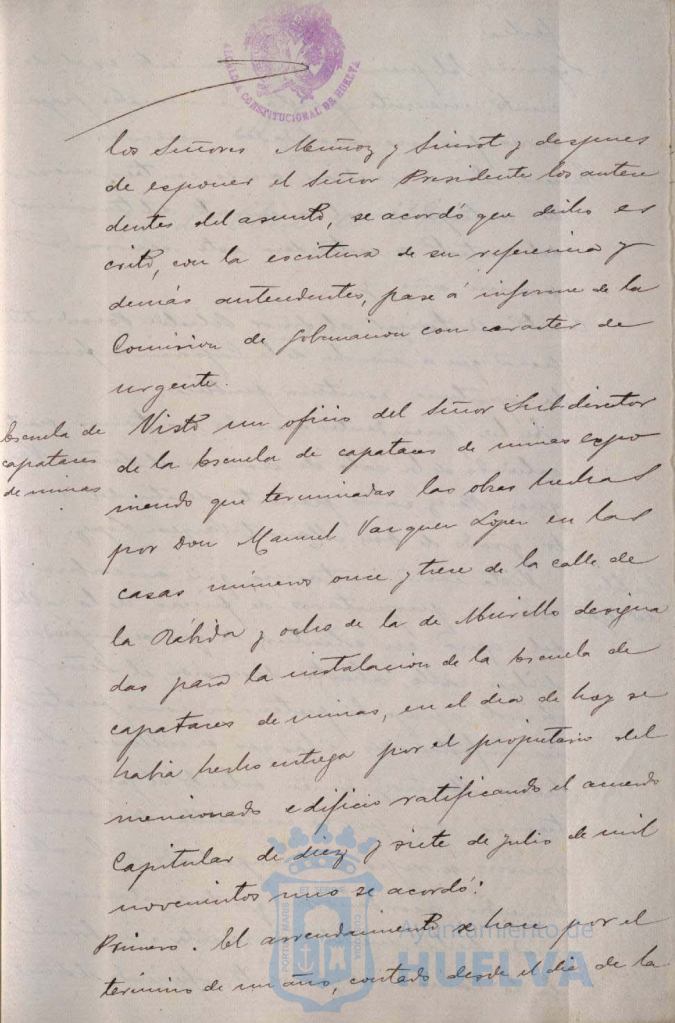 ALCALDIA CONSTITUCIONAL DE HUELVA
los Señores Muñoz y Sinrot y despues
de esponer el Señor Presidente los antece
dentes del asunto, se acordó que dicho es
crito, con la escritura de su referencia y
demás antecedentes, pase á informe de la
Comision de Gobernacion con caracter de
urgente.
Escuela de
capataces
de minas
Visto un oficio del Señor Subdirector
de la Escuela de capataces de minas expo
niendo que terminadas las obras hechas
por Don Manuel Vazquez Lopez en las
casas números once y trece de la calle de
la Rábida y ocho de la de Murillo designa
das para la instalacion de la Escuela de
capataces de minas, en el dia de hoy se
habia hecho entrega por el propietario del
mencionado edificio ratificando el acuerdo
Capitular de diez y siete de Julio de mil
novecientos uno se acordó:
Primero. El arrendimiento se hace por el
término de un año, contado desde el dia de la
PORTUS MARIS ET TERRE CUSTODIA
Ayuntamiento de
HUELVA